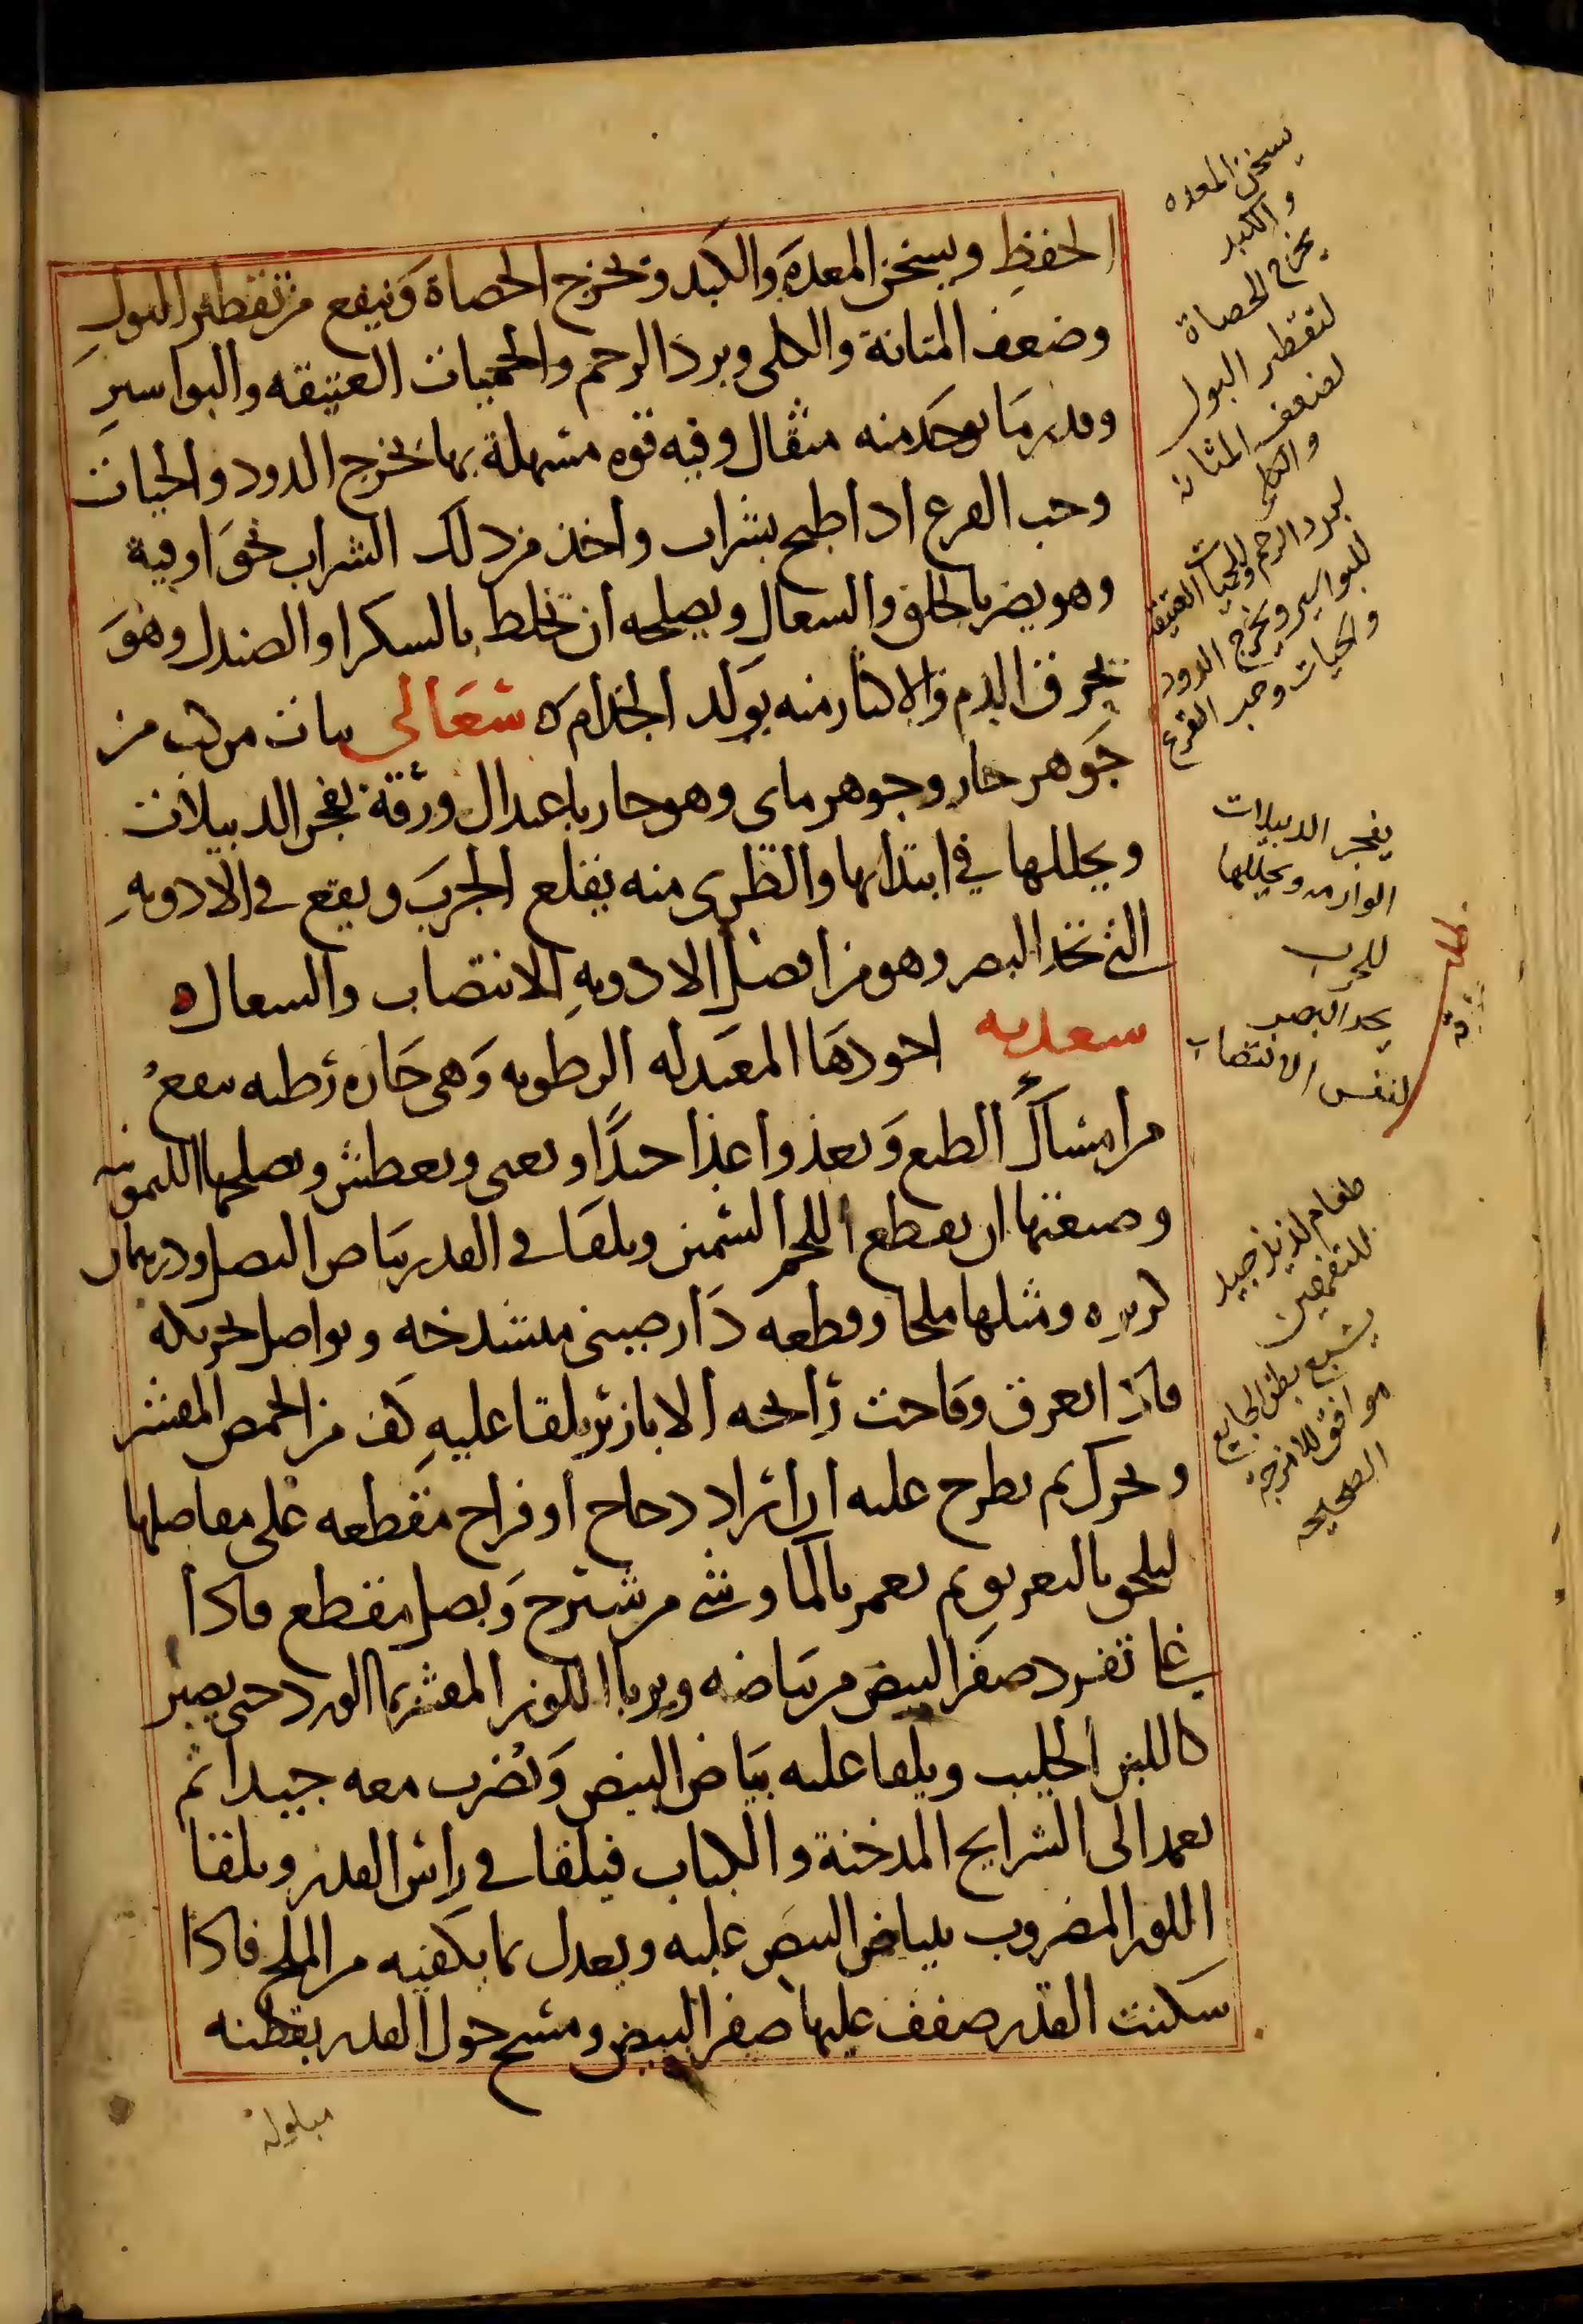 الحفظِ ويسخن المعدَه والكبد ويخرج الحصاة وَينفع من تقطير البولِ
وضعف المثانة والكلى وبرد الرحم والحميات العتيقه والبواسيرِ
وقدر مَا يوخَد منه مثقال وفيه قوه مسهلة بها يخرج الدود والحيات
وحب القرع اذا طبخ بشراب وأخذ من ذلك الشراب نحوَ اوقية
وهو يضر بالحلق والسعال ويصلحه أن تخلط بالسكر او الصندل وهوَ
يحرق الدم والاكثار منه يولد الجذام ه شعَالى نبات مركب من
جَوهر حار وجوهر ماى وهو حار باعتدال ورقة يفجر الدبيلات
ويحللها في ابتدائها والظرى منه يقلع الجربَ ويقع فى الادويهِ
التى تحد البصر وهو من افضل الادويهِ لانتصاب والسعال ه
سعديه اجودهَا المعتدله الرطوبه وَهى حَاره رطبه ينفعُ
من امسَاك الطبع وَيغذوا غذا جيدًا ويعمى ويعطش ويصلحها الليمونيه
وصنعتها ان يقطع اللحم السمين ويلقا فى القدر بيَاض البصل ودرهمان
كزبره ومثلها ملحا وقطعه دَار صينى منشدخه ويواصل تحريكه
فاذا انعرق وفاحت رَايحه الابازير يلقا عليهِ كف من الحمص المقشر
ويحرك ثم يطرح عليه ان ارَاد دجاج أو فراخ مَقطعه على مفاصلها
ليلحق بالتعريق ثم يعمر بالمَا وشى من شيرج وَبصل مقطع فاذا
غلا تفرد صفر البيض من بيَاضه ويربا اللوز المقشر بما الورد حتى يصير
كاللبن الحليب ويلقا عليه بيَاض البيض وَيضرب معه جيدا ثم
يعمد الى الشرايح المدخنة والكباب فيلقا فى رأس القدر ويلقا
اللوز المضروب ببياض البيض عليه ويعدل بما يكفيه من الملح فاذا
سَكنت القدر صفف عليها صفر البيض ومسح حول القدر بقطنه
مبلولة
يسخن المعده
والكبد
يخرج الحصاة
لتقطير البول
لضعف المثانه
والكلى
لبرد الرحم والحميات العتيقه
للبواسير ويخرج الدود
والحيات وحب القرع
يفجر الدبيلات
الوارمه ويحللها
للجرب
يحد البصر
لنفس الانتصاب
طعام لذيذ جيد
يشبع بطن الجايع
موافق للامزجة
الصحيحه